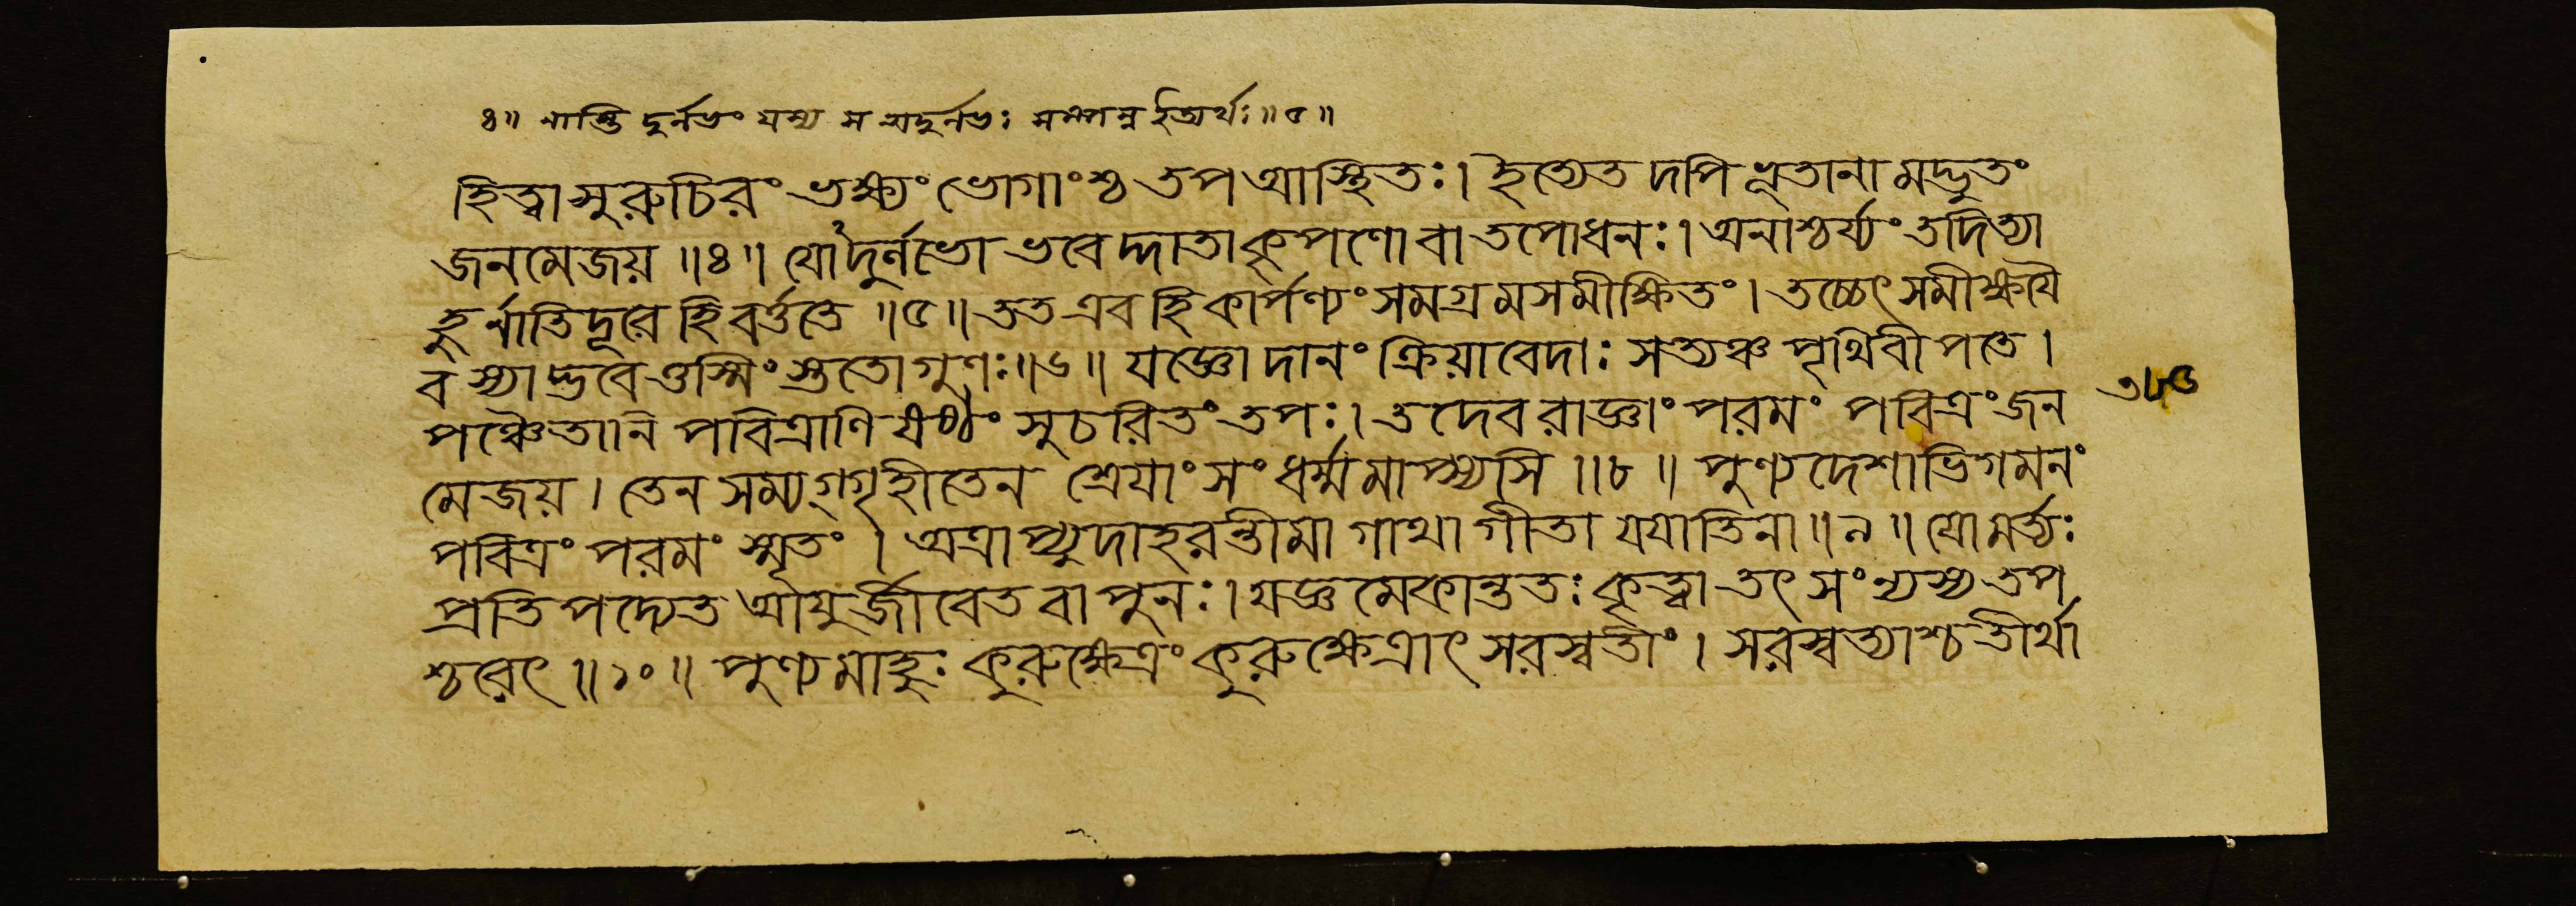 ৪॥ নাস্তি দুর্লভং যস্য স অদুর্লভঃ সম্পন্ন ইত্যর্থঃ॥৫॥
হিত্বা সুরুচিরং ভক্ষ্যং ভোগাংশ্চ তপ আস্থিতঃ। ইত্যেতদপি ভূতানামদ্ভুতং
জনমেজয়॥৪॥ যোঽদুর্লভো ভবেদ্দাতা কৃপণো বা তপোধনঃ। অনাশ্চর্য্যং তদিত্যা
হুর্নাতিদূরে হি বর্ত্ততে॥৫॥ তত এব হি কার্পণ্যং সমগ্রমসমীক্ষিতং। তচ্চেৎ সমীক্ষয়ৈ
ব স্যাদ্ভবেত্তস্মিংস্ততো গুণঃ॥৬॥ যজ্ঞো দানং ক্রিয়া বেদাঃ সত্যঞ্চ পৃথিবীপতে।
পঞ্চৈতানি পবিত্রাণি ষষ্ঠং সুচরিতং তপঃ। তদেব রাজ্ঞাং পরমং পবিত্রং জন
মেজয়। তেন সম্যগ্গৃহীতেন শ্রেয়াংসং ধর্ম্মমাপ্স্যসি॥৮॥ পুণ্যদেশাভিগমনং
পবিত্রং পরমং স্মৃতং। অত্রাপ্যুদাহরন্তীমা গাথা গীতা যযাতিনা॥৯॥ যো মর্ত্যঃ
প্রতিপদ্যেত আয়ুর্জীবেত বা পুনঃ। যজ্ঞমেকান্ততঃ কৃত্বা তৎ সংন্যস্য তপ
শ্চরেৎ॥১০॥ পুণ্যমাহুঃ কুরুক্ষেত্রং কুরুক্ষেত্রাৎ সরস্বতীং। সরস্বত্যাশ্চ তীর্থা
৩৮৫